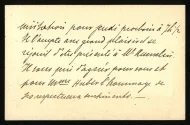 invitation pour jeudi prochain à 7h ½
Je l'accepte avec grand plaisir et me
réjouis d'être présenté à Mr
Il vous prie d'agréer pour vous et
pour Mme Huber l'hommage de
ses respectueux sentiments. —